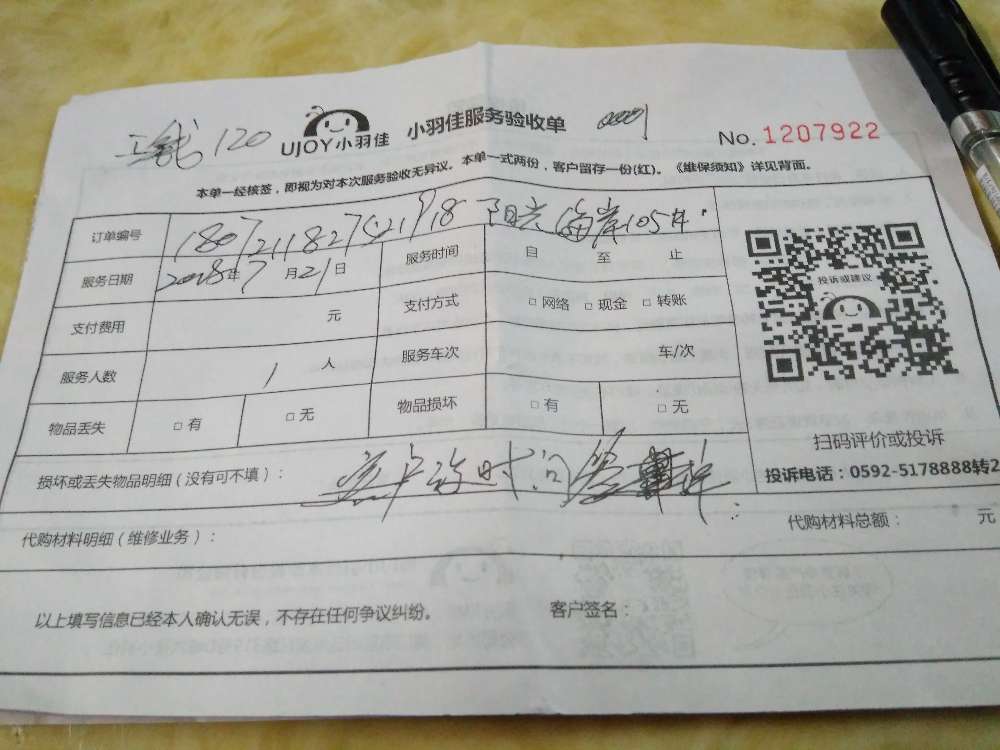 120 UJOY小羽佳 小羽佳服务验收单 No. 1207922
本单一经核签，即视为对本次服务验收无异议。本单一式两份，客户留存一份(红)。《维保须知》详见背面。
订单编号 阳光海岸105#
服务日期 2018年7月21日 服务时间 自 至 止
投诉或建议
支付费用 元 支付方式 □ 网络 □ 现金 □ 转账
服务人数 1 人 服务车次 车/次
物品丢失 □ 有 □ 无 物品损坏 □ 有 □ 无
扫码评价或投诉
投诉电话：0592-5178888转2
损坏或丢失物品明细（没有可不填）： 客户没时间
代购材料明细（维修业务）： 代购材料总额： 元
以上填写信息已经本人确认无误，不存在任何争议纠纷。 客户签名：